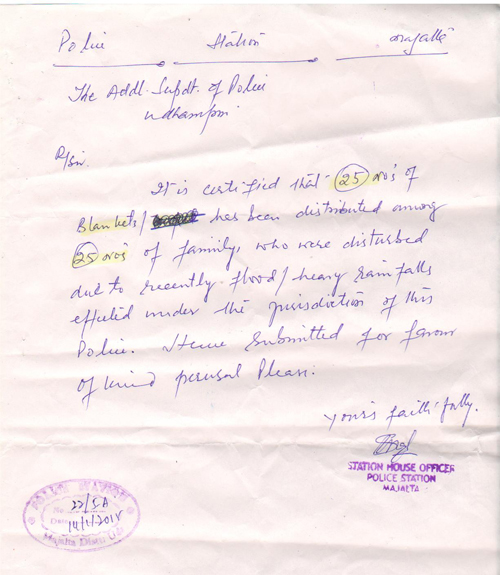 Police Station Majalta
The Addl. Supdt. of Police
Udhampur
R/Sir.
It is certified that 25 no's of
Blankets/ has been distributed among
25 no's of family, who were disturbed
due to recently flood/heavy rain falls
effected under the jurisdiction of this
Police. Hence Submitted for favour
of kind perusal Please.
Yours faithfully.
STATION HOUSE OFFICER
POLICE STATION
MAJALTA
POLICE STATION
No. 22/5A
Date 14/1/2015
Majalta Distt